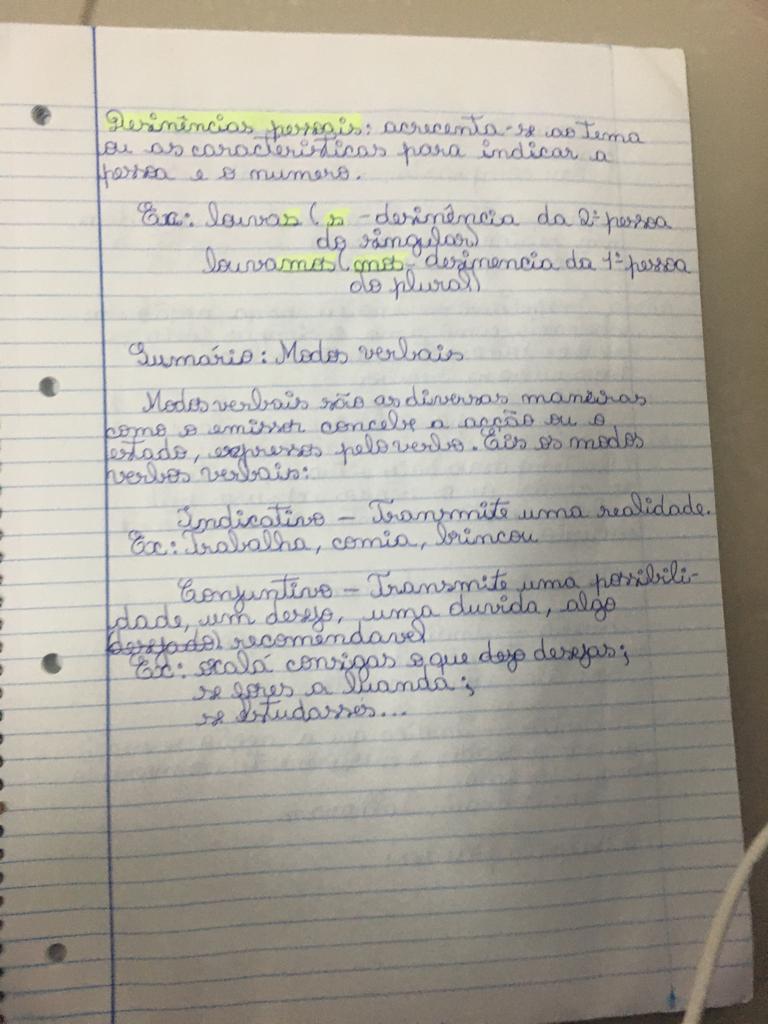 Desinências pessoais: acrecenta-se ao tema
ou as caracteristicas para indicar a
pessoa e o numero.
Ex: louvas (s - desinência da 2ª pessoa
do singular)
louvamos (mos - desinencia da 1ª pessoa
do plural)
Sumário: Modos verbais
Modos verbais são as diversas maneiras
como o emissor concebe a acção ou o
estado, expressos pelo verbo. Eis os modos
verbos verbais:
Indicativo - Transmite uma realidade.
Ex: Trabalha, comia, brincou
Conjuntivo - Transmite uma possibili-
dade, um desejo, uma duvida, algo
desejado recomendavel
Ex: oxalá consigas o que dezo desejas;
se fores a luanda;
se estudasses...